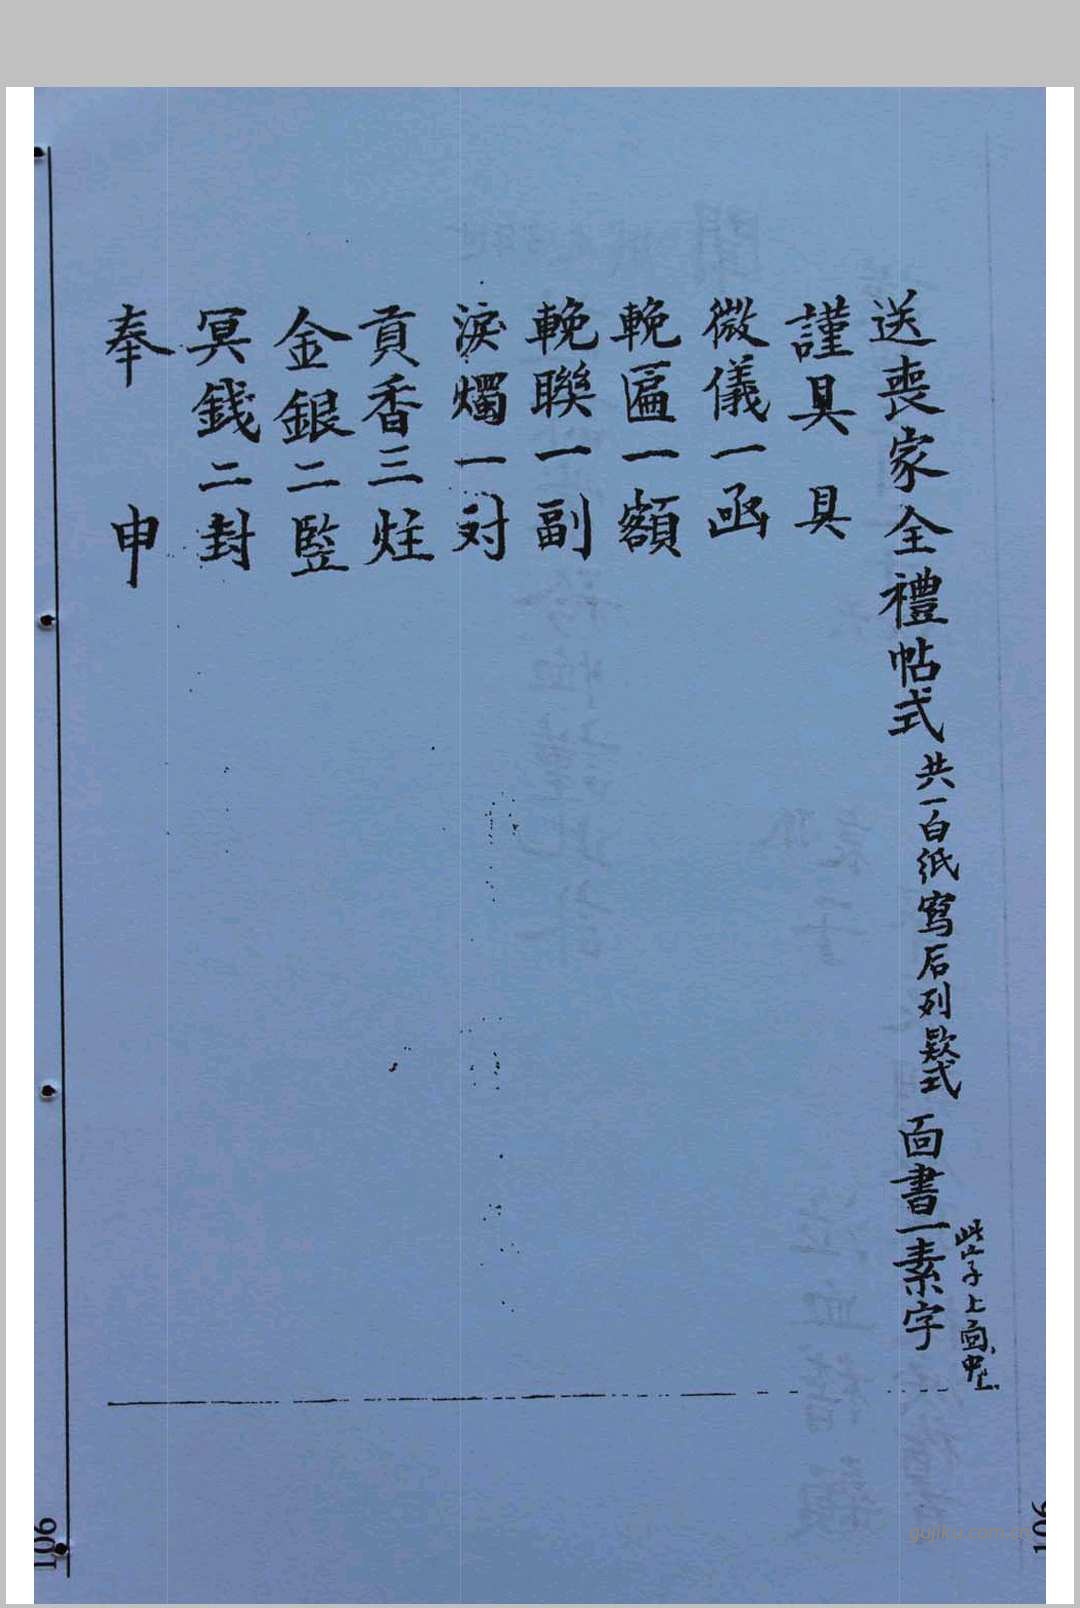 送喪家全禮帖式 共一白紙寫后列欵式 面書一素字
此字上面中上
謹具 具
微儀一函
輓匾一額
輓聯一副
淚燭一对
貢香三炷
金銀二竪
冥錢二封
奉 申
106
106